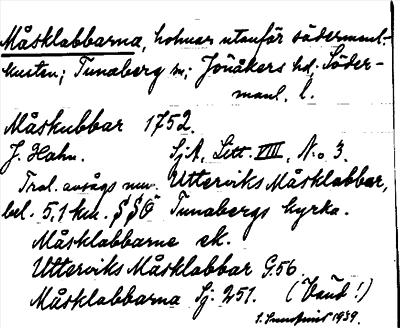 Måsklabbarna, holmar utanför södermanl.-
kusten; Tunaberg sn; Jönåkers hd, Söder-
manl. l.
Måskubbar 1752.
J. Hahn. SjA, Litt. VIII, No 3.
Trol. avsågs nuv. Utterviks Måsklabbar,
bel. 5,1 km. SSÖ Tunabergs kyrka.
Måsklabbarne ek.
Utterviks Måsklabbar G.56.
Måsklabbarna Sj. 251. (Vaud!)
1939.